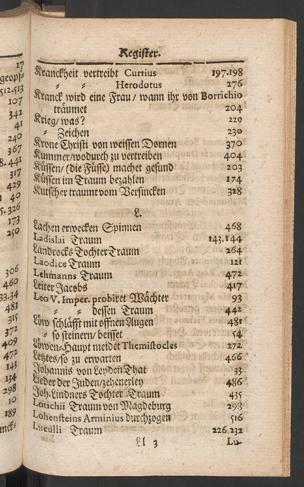 Register.
Kranckheit vertreibt Curtius 197.198
" " Herodotus 276
Kranck wird eine Frau/ wann ihr von Borrichio
träumet 204
Krieg/ was? 229
" Zeichen 230
Krone Christi von weissen Dornen 370
Kummer/ wodurch zu vertreiben 404
Küssen/ (die Füsse) machet gesund 203
Küssen im Traum bezahlen 174
Kutscher traumt vom Versincken 328
L.
Lachen erwecken Spinnen 468
Ladislai Traum 143.144
Landrocks Tochter Traum 264
Laodice Traum 121
Lehmanns Traum 472
Leiter Jacobs 417
Leo V. Imper. probiret Wächter 93
" " dessen Traum 442
Löw schläfft mit offnen Augen 481
" so steinern/ beisset 54
Löwen-Haupt meldet Themistocles 272
Letztes/ so zu erwarten 466
Johannis von Leyden That 33
Lieder der Juden/ zehenerley 486
Joh. Lindners Tochter Traum 435
Lotichii Traum von Magdeburg 298
Lohensteins Arminius durchzogen 516
Luculli Traum 226.232
Ll 3 Lu-
17
512.513
107
342
241
240
367
441
317
173
250
306
460
481
310
10
189